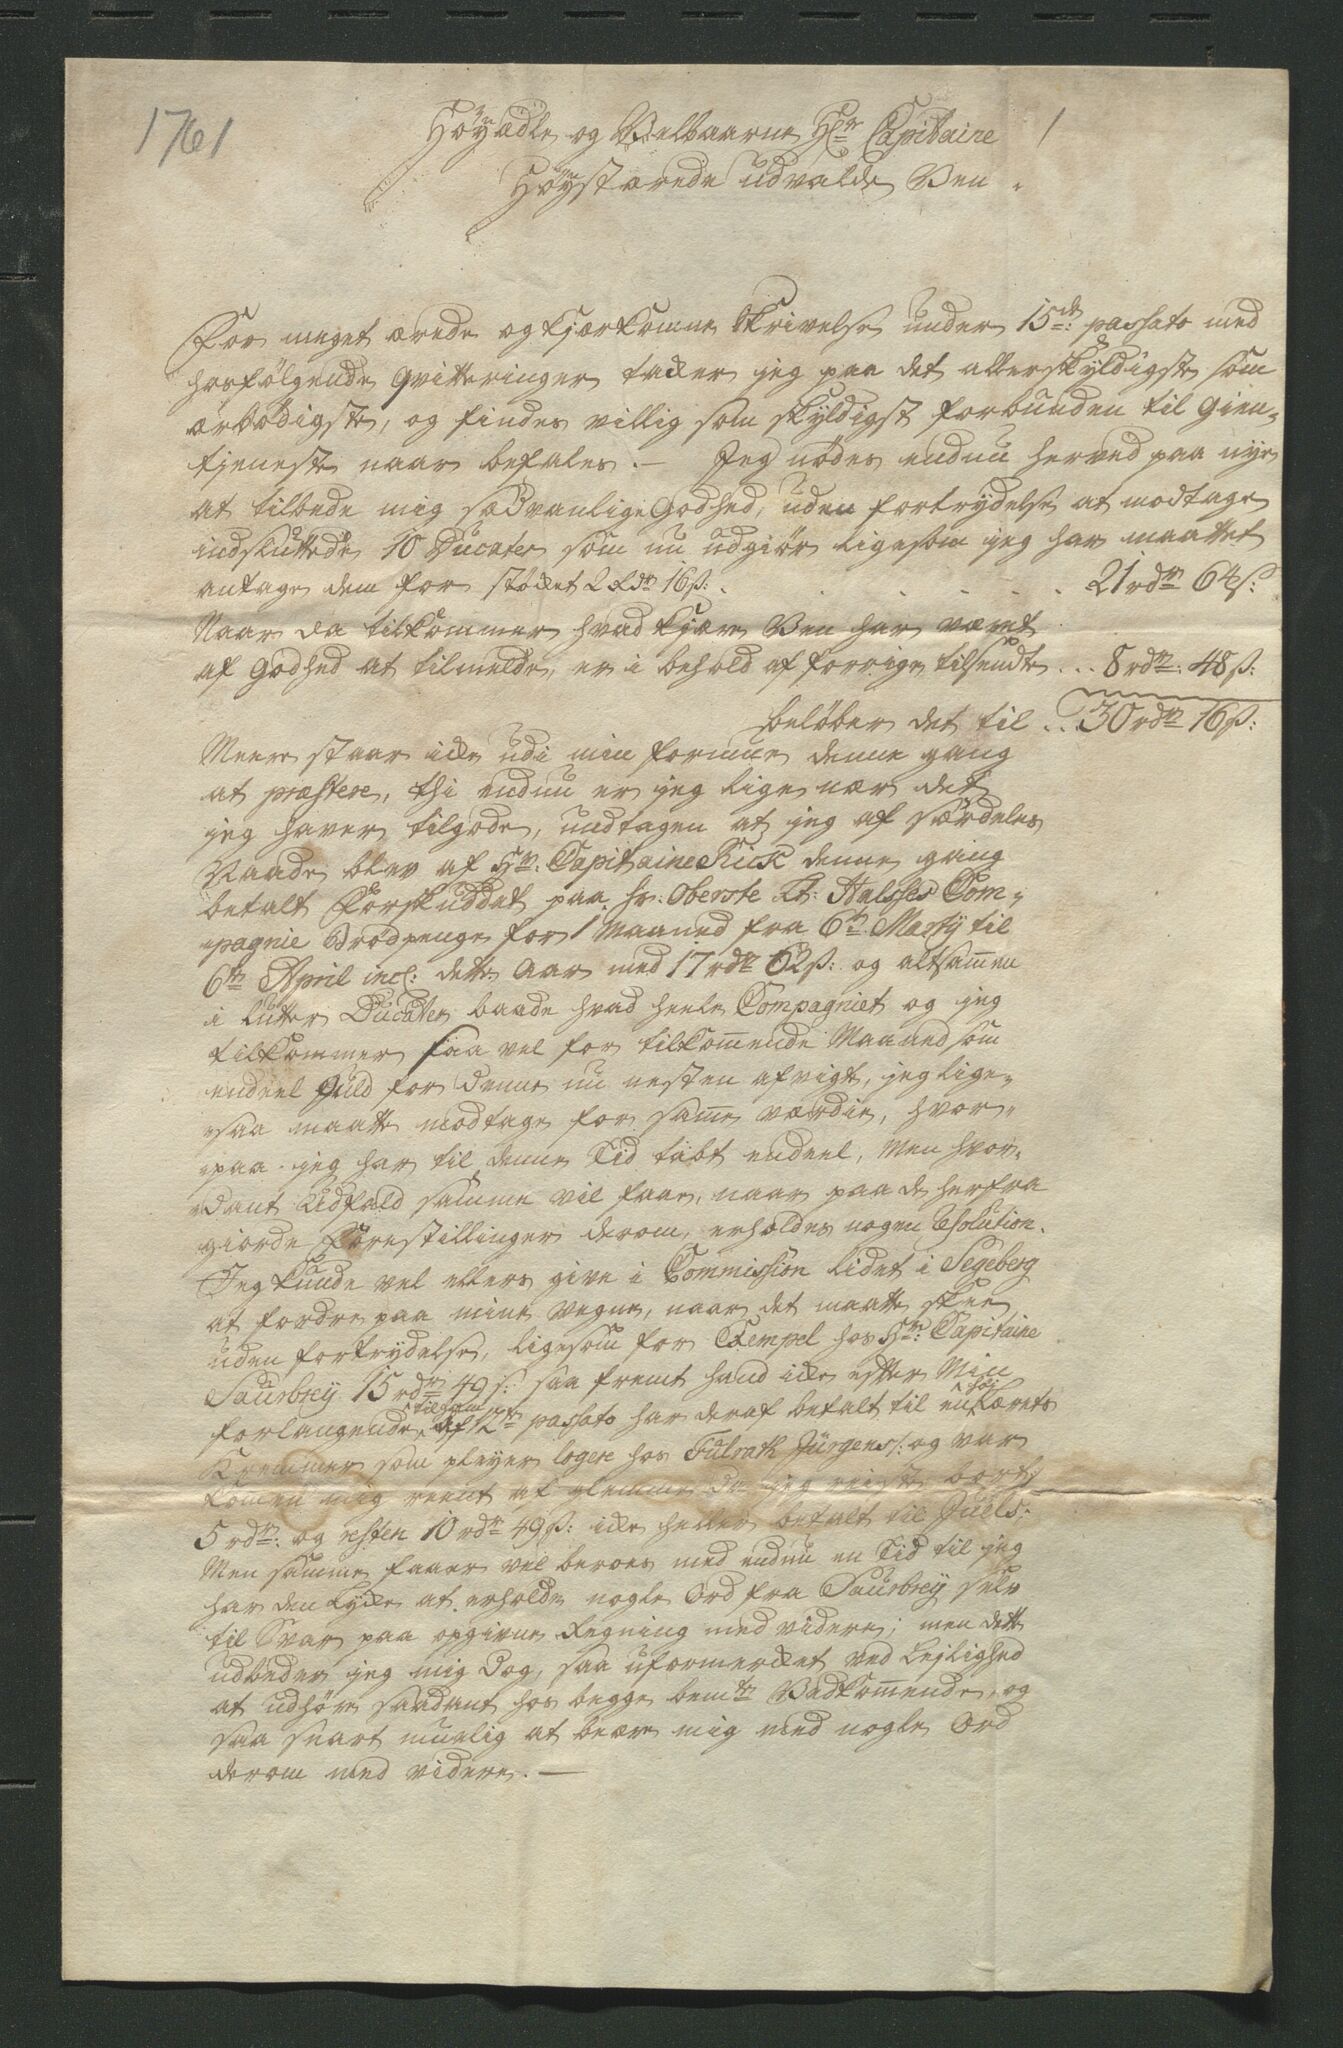 1761
1
Höyædle og Velbaarne Hr. Capitaine
Höystærede udvalde Ven
For meget ærede og kjærkomne Skrivelse under 15de: passato med
hosfølgende Qvitteringer tacker jeg paa det allerskyldigste som
ærbødigste, og findes villig som skyldigst forbunden til Gien-
tjeneste naar befales. — Jeg nødes endnu herved paa nye
at tilbede mig sædvanlige Godhed, uden fortrydelse at modtage
indsluttede 10 Ducater som nu udgiør ligesom jeg har maattet
antage dem for støcket 2 Rdr 16 ß: . . . . . . 21 rdr 64 ß:
Naar da tilkommer hvad kjære Ven har været
af Godhed at tilmelde, er i behold af forrige tilsendte . . . 8 rdr: 48 ß:
beløber det til . . . 30 rdr 16 ß:
Meere staar icke udi min formue denne gang
at præstere, thi endnu er jeg lige nær det
jeg haver tilgode, undtagen at jeg af særdeles
Naade blev af Hr: Capitaine Kick denne gang
betalt Forskuddet paa hr: Oberste Lt: Hulsses Com-
pagnie Brødpenge for 1 Maaned fra 6te Martÿ til
6te April incl: dette Aar med 17 rdr 62 ß: og altsammen
i lutter Ducater baade hvad heele Compagniet og jeg
tilkommer saa vel for tilkommende Maaned som
endeel Guld for denne nu nesten afvigte, jeg lige-
saa maatte modtage for samme værdie, hvor-
paa jeg har til denne Tid tabt endeel, Men hvor-
dant Udfald samme vil faae, naar paa de herfra
giorde Forestillinger derom, erholdes nogen Resolution.
Jeg kunde vel ellers give i Commission lidet i Segeberg
at fordre paa mine vegne, naar det maatte skee
uden fortrydelse, ligesom for Exempel hos Hr: Capitaine
Saursbrey 15 rdr 49 ß: saa fremt hand icke efter Min
forlangende til ham af 12te passato har deraf betalt til en
Kremmer som pleyer logere hos Fulrath Jürgens /: og var
kommen mig reent af glemme da jeg reiste bort :/
5 rdr: og resten 10 rdr 49 ß: icke heller betalt til Juels:
Men samme faaer vel beroe med endnu en Tid til jeg
har den Lycke at erholde nogle Ord fra Saursbrey selv
til Svar paa opgivne Regning med videre; men dette
udbeder jeg mig dog, saa uformercket ved Lejlighed
at udhøre saadant hos begge bemte Vedkommende, og
saa snart muelig at beære mig med nogle Ord
derom med videre. —